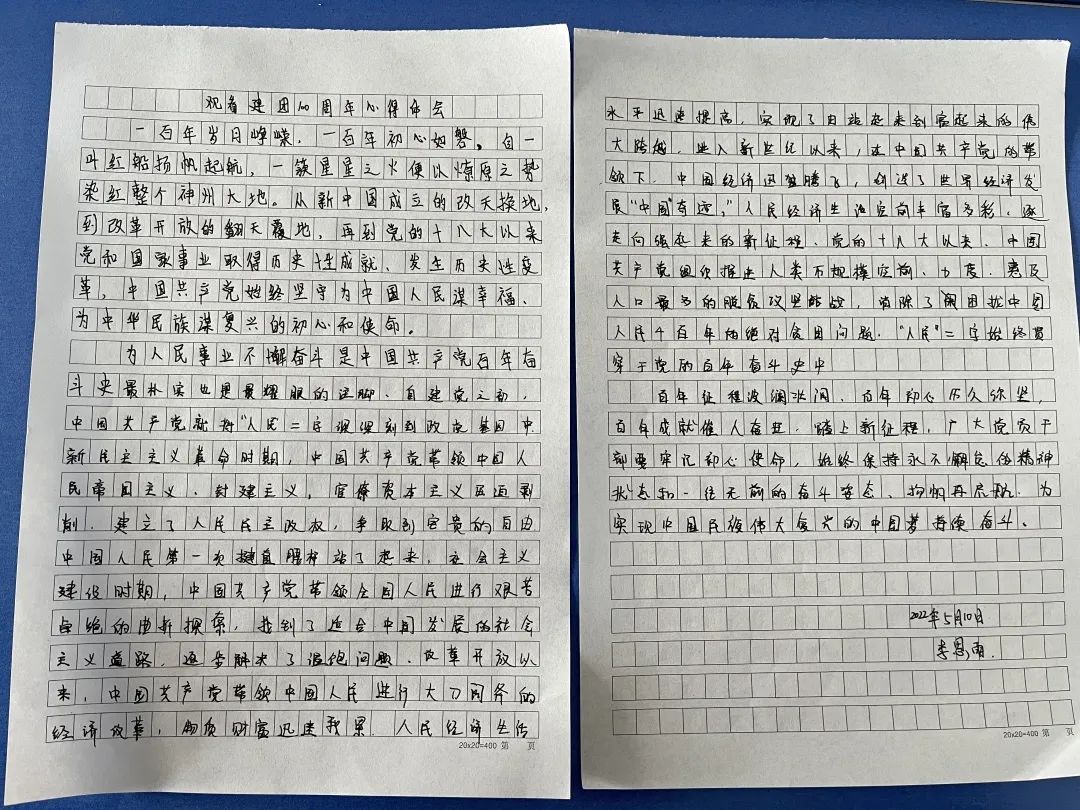 观看建团100周年心得体会
一百年岁月峥嵘，一百年初心如磐。自一
叶红船扬帆起航，一簇星星之火便以燎原之势
染红整个神州大地。从新中国成立的改天换地，
到改革开放的翻天覆地，再到党的十八大以来
党和国家事业取得历史性成就、发生历史性变
革，中国共产党始终坚守为中国人民谋幸福、
为中华民族谋复兴的初心和使命。
为人民事业不懈奋斗是中国共产党百年奋
斗史最朴实也是最耀眼的注脚。自建党之初，
中国共产党就将“人民”二字深深刻到政党基因中
新民主主义革命时期，中国共产党带领中国人
民帝国主义、封建主义，官僚资本主义压迫剥
削，建立了人民民主政权，争取到宝贵的自由
中国人民第一次挺直腰杆站了起来，社会主义
建设时期，中国共产党带领全国人民进行艰苦
卓绝的曲折探索，找到了适合中国发展的社会
主义道路，逐步解决了温饱问题。改革开放以
来，中国共产党带领中国人民进行大刀阔斧的
经济改革，物质财富迅速积累，人民经济生活
20x20=400 第 页
水平迅速提高，实现了由站起来到富起来的伟
大跨越，进入新世纪以来，在中国共产党的带
领下，中国经济迅猛腾飞，创造了世界经济发
展“中国”奇迹，“人民经济生活空前丰富多彩，逐
走向强起来的新征程。党的十八大以来，中国
共产党组织推进人类不规模空前、力度、惠及
人口最多的脱贫攻坚战，消除了困扰中国
人民千百年的绝对贫困问题。“人民”二字始终贯
穿于党的百年奋斗史中
百年征程波澜壮阔，百年初心历久弥坚，
百年成就催人奋进。踏上新征程，广大党员干
部要牢记初心使命，始终保持永不懈怠的精神
状态和一往无前的奋斗姿态，扬帆再启航，为
实现中国民族伟大复兴的中国梦持续奋斗。
2022年5月10日
李思雨.
20x20=400 第 页